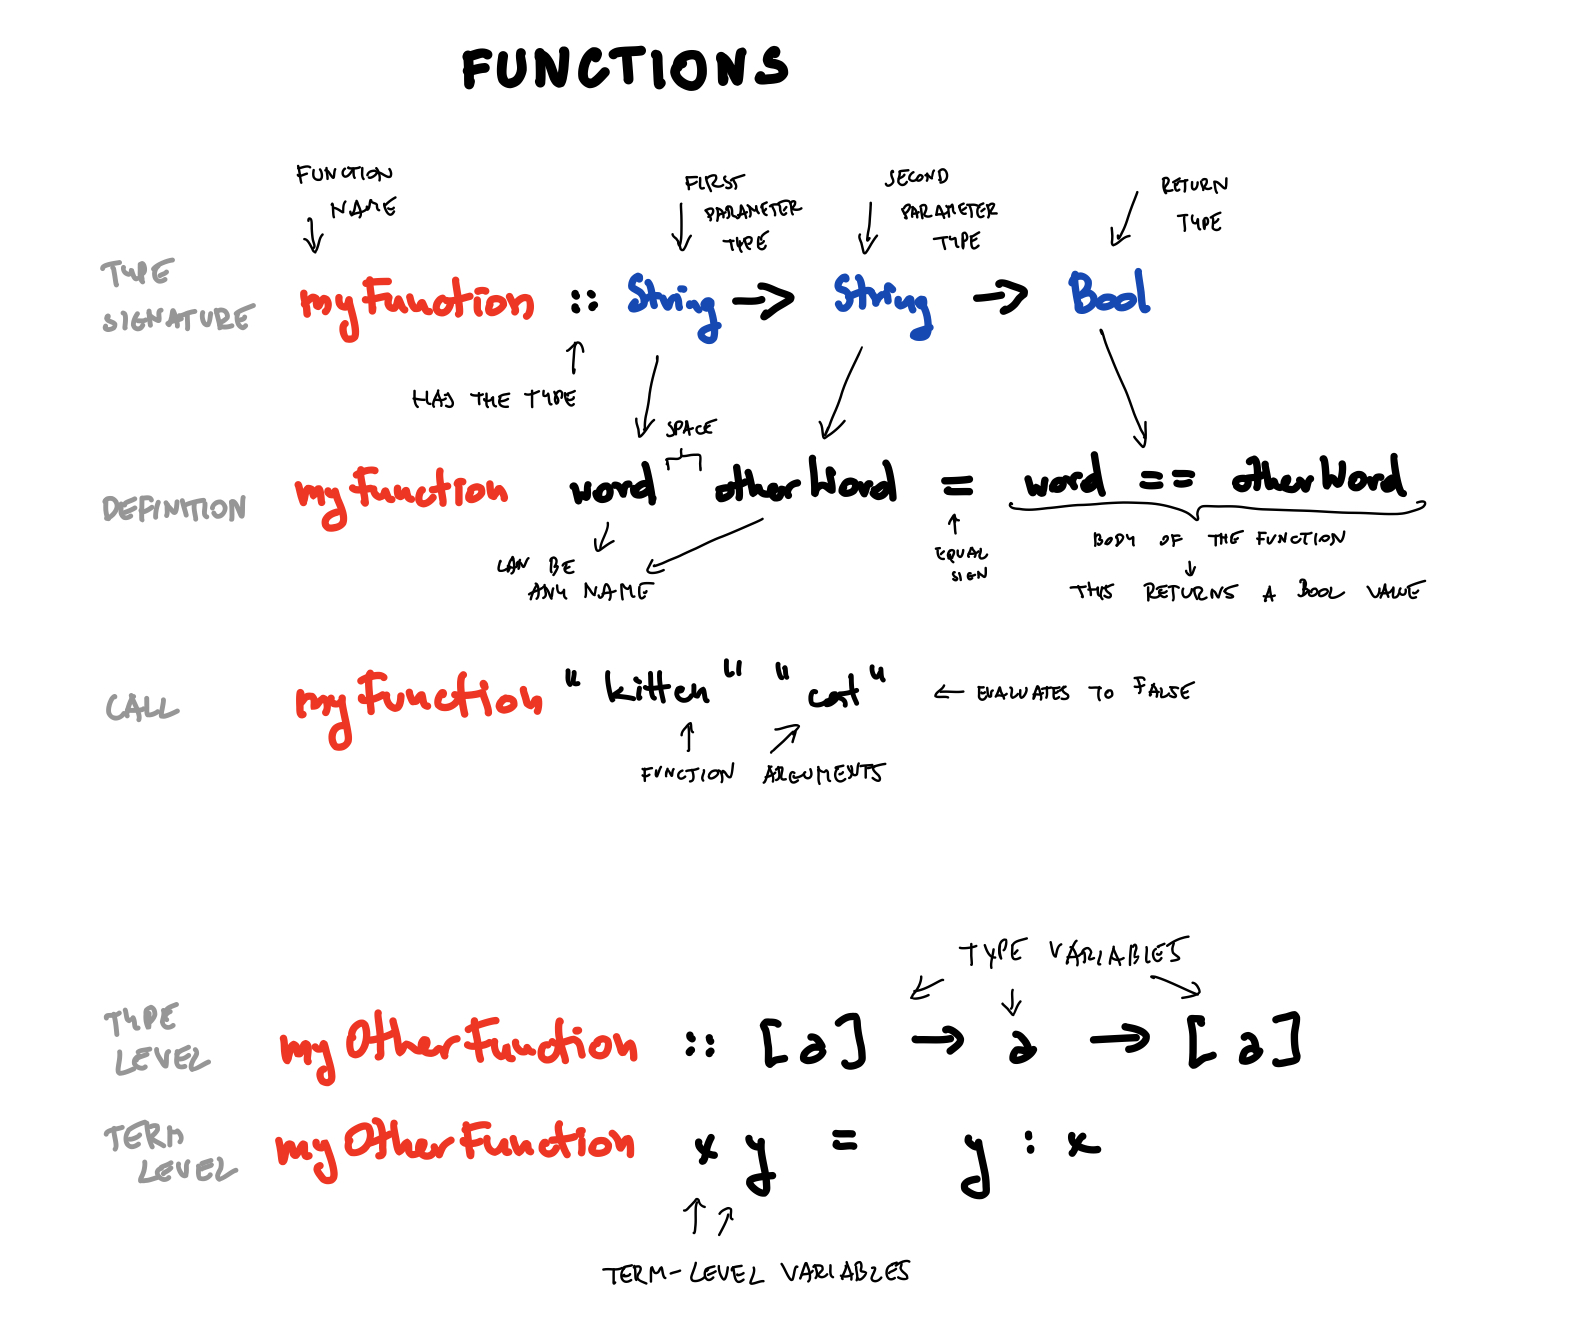 FUNCTIONS
FUNCTION
NAME
FIRST
PARAMETER
TYPE
SECOND
PARAMETER
TYPE
RETURN
TYPE
TYPE
SIGNATURE
myFunction :: String -> String -> Bool
HAS THE TYPE
SPACE
DEFINITION
myFunction word otherWord = word == otherWord
CAN BE
ANY NAME
EQUAL
SIGN
BODY OF THE FUNCTION
THIS RETURNS A BOOL VALUE
CALL
myFunction "kitten" "cat" ← EVALUATES TO FALSE
FUNCTION ARGUMENTS
TYPE VARIABLES
TYPE
LEVEL
myOtherFunction :: [a] → a → [a]
TERM
LEVEL
myOtherFunction x y = y : x
TERM-LEVEL VARIABLES